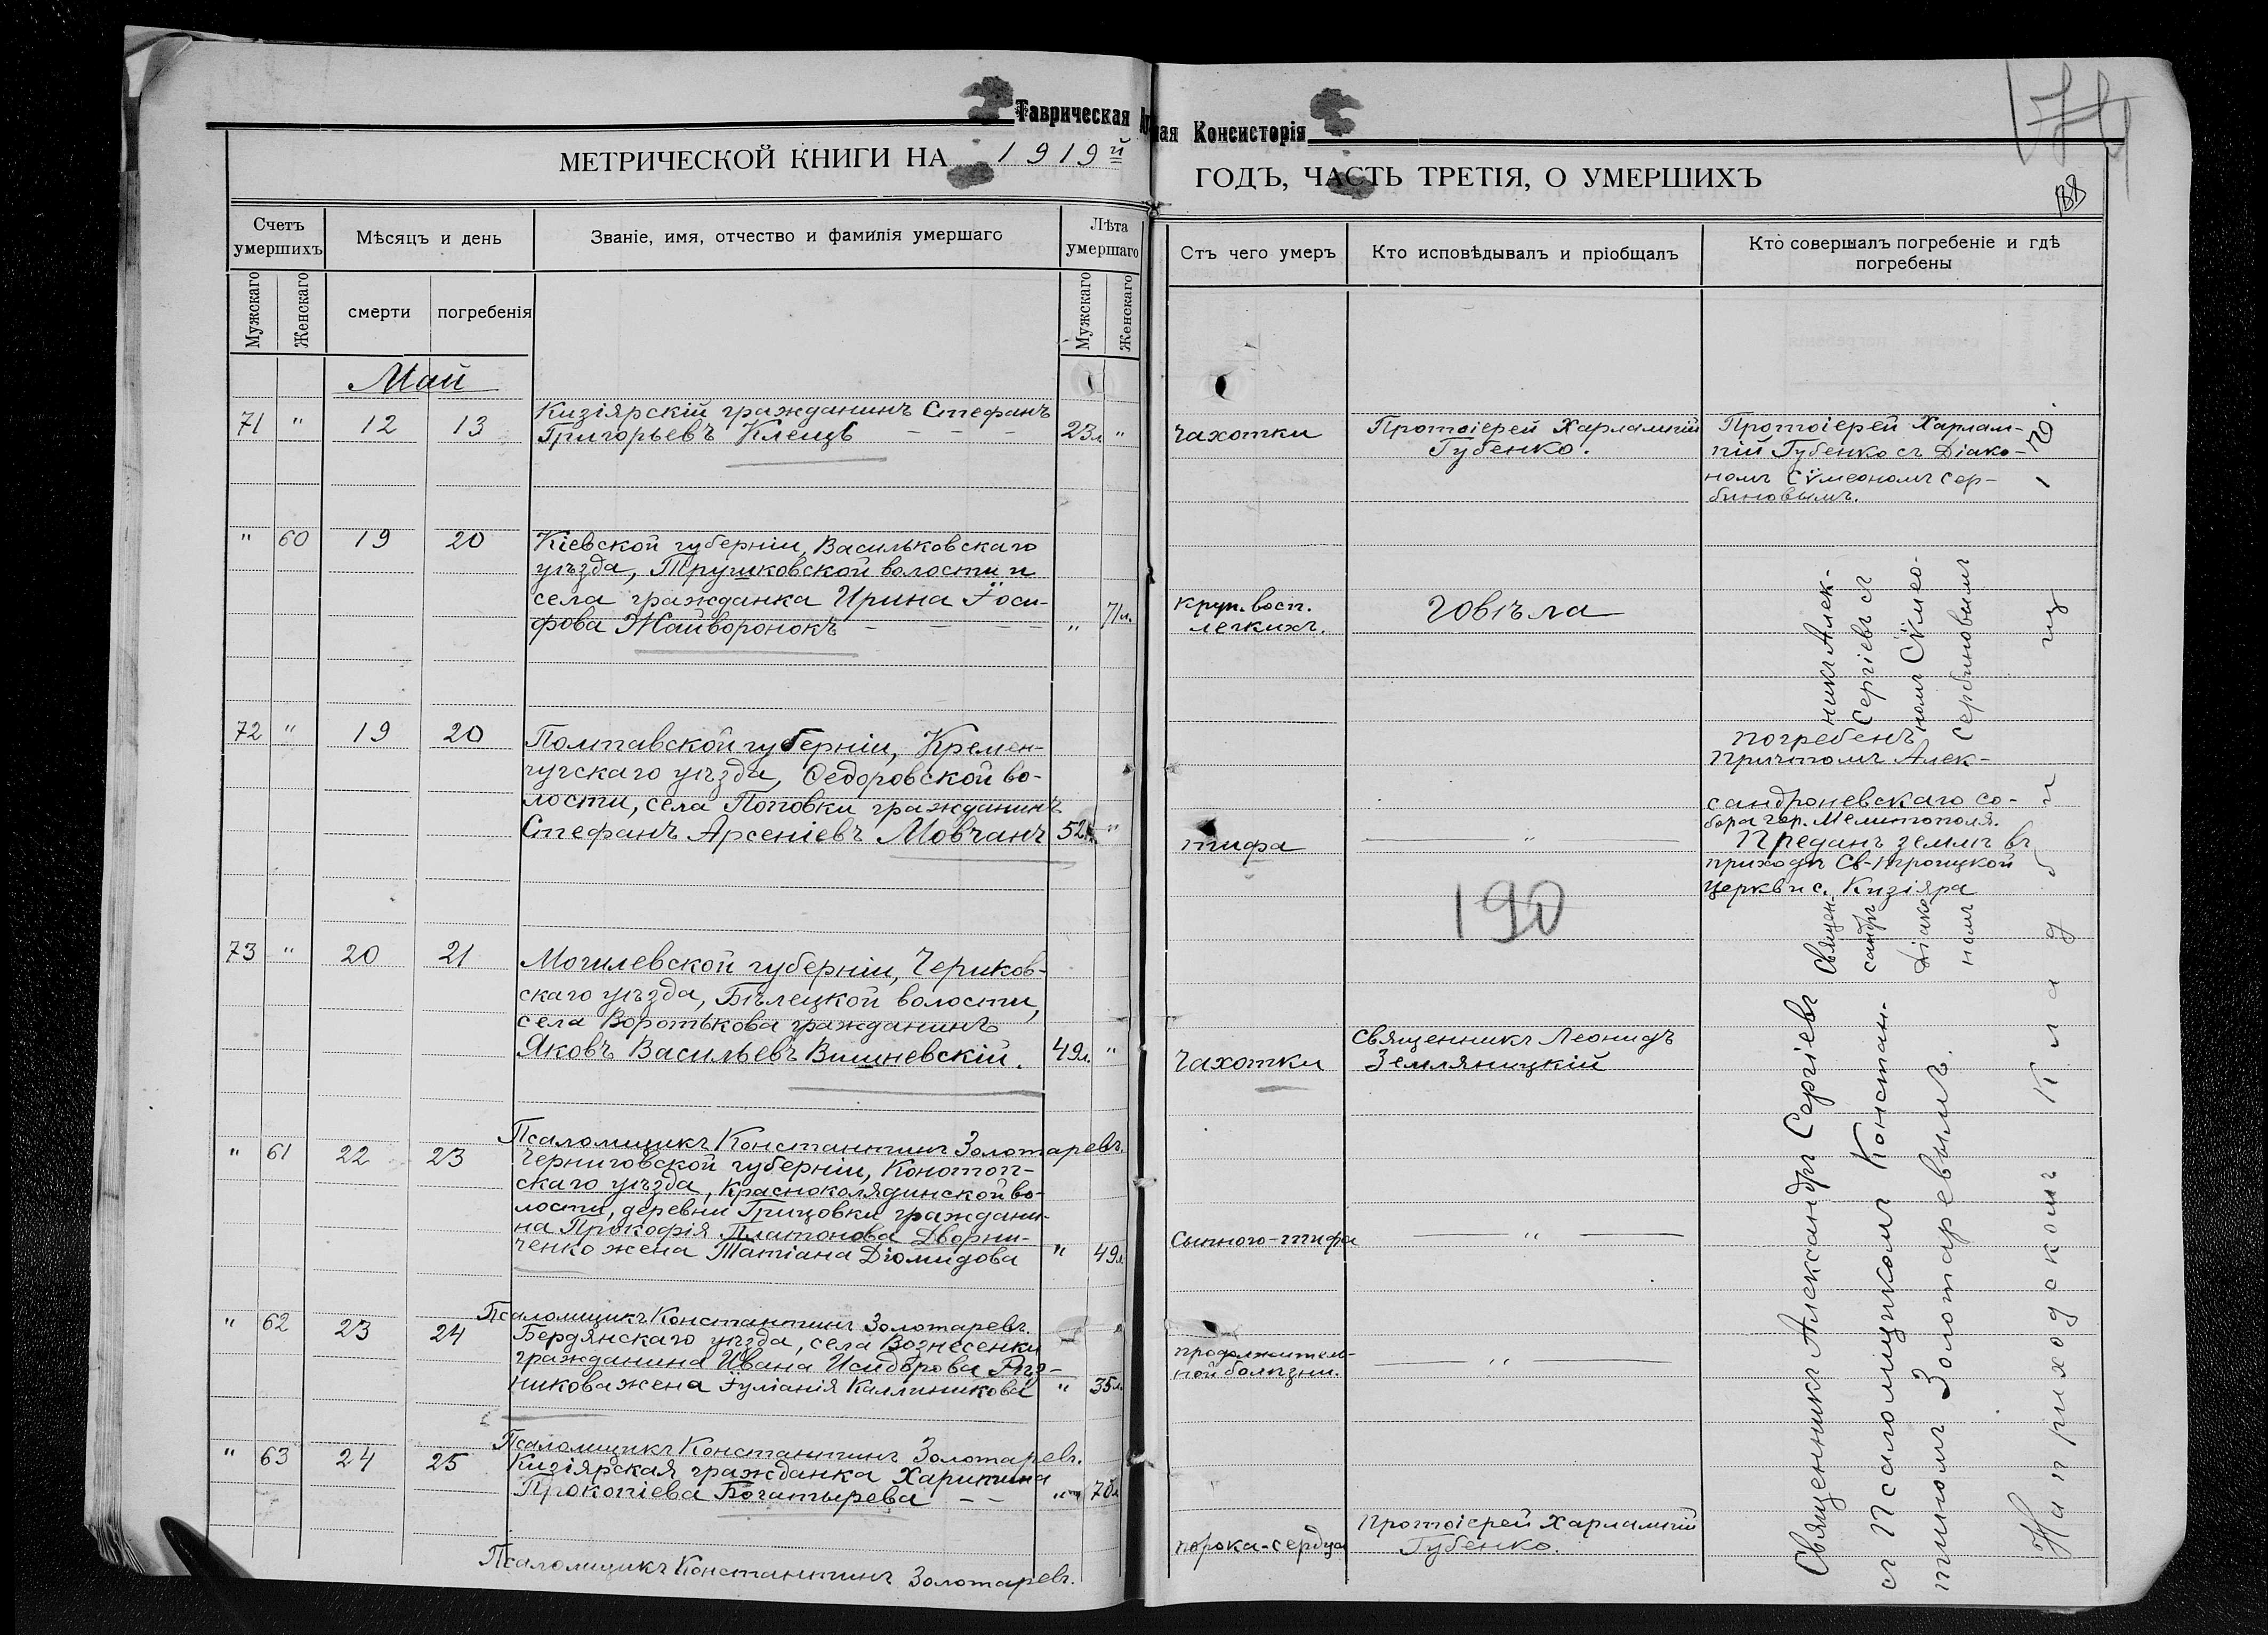 Таврическая
ная Консисторія
МЕТРИЧЕСКОЙ КНИГИ НА 1919й
ГОДЪ, ЧАСТЬ ТРЕТІЯ, О УМЕРШИХЪ
188
Счетъ умершихъ
Мѣсяцъ и день
Званіе, имя, отчество и фамилія умершаго
Лѣта умершаго
Мужскаго
Женскаго
смерти
погребенія
Мужскаго
Женскаго
Стъ чего умеръ
Кто исповѣдывалъ и пріобщалъ
Кто совершалъ погребеніе и гдѣ
погребены
Май
71 " 12 13
Кизіярскій гражданинъ Стефанъ
Григорьевъ Клещъ — — —
23л. "
чахотки
Протоіерей Харлампій
Губенко.
Протоіерей Харлам-
пій Губенко съ Діако-
номъ Сѵмеономъ Сер-
биновымъ.
" 60 19 20
Кіевской губерніи, Васильковскаго
уѣзда, Трушковской волости и
села гражданка Ирина Іоси-
фова Жайворонокъ — — —
" 71л.
круп. восп.
легкихъ.
Говѣла
Священ-
никъ Алек-
сандръ
Сергіевъ съ
Діако-
номъ Сѵмео-
номъ
Сербиновымъ
72 " 19 20
Полтавской губерніи, Кремен-
чугскаго уѣзда, Ѳедоровской во-
лости, села Поповки гражданинъ
Стефанъ Арсеніевъ Мовчанъ
52л. "
тифа
— " —
погребенъ
причтомъ Алек-
сандроневскаго со-
бора гор. Мелитополя.
Преданъ землѣ въ
приходѣ Св-троицкой
церкви с. Кизіяра
190
73 " 20 21
Могилевской губерніи, Чериков-
скаго уѣзда, Бѣлецкой волости,
села Воротькова гражданинъ
Яковъ Васильевъ Вишневскій.
49л. "
чахотки
Священникъ Леонидъ
Земляницкій
Псаломщикъ Константинъ Золотаревъ.
" 61 22 23
Черниговской губерніи, Конотоп-
скаго уѣзда, Красноколядинской во-
лости, деревни Грицовки граждани-
на Прокофія Платонова Дворни-
ченко жена Татіана Діомидова
" 49л.
Сыпного-тифа
— " —
Псаломщикъ Константинъ Золотаревъ.
" 62 23 24
Бердянскаго уѣзда, села Вознесенки
гражданина Ивана Исидорова Рѣз-
никова жена Іуліанія Каллиникова
" 35л.
продолжитель-
ной болѣзни.
— " —
Псаломщикъ Константинъ Золотаревъ.
" 63 24 25
Кизіярская гражданка Харитина
Прокопіева Богатырева — —
" 70л
порока-сердца
Протоіерей Харлампій
Губенко.
Псаломщикъ Константинъ Золотаревъ.
Священникъ Александръ Сергіевъ
съ Псаломщикомъ Констан-
тиномъ Золотаревымъ.
На приходскомъ кладбищ